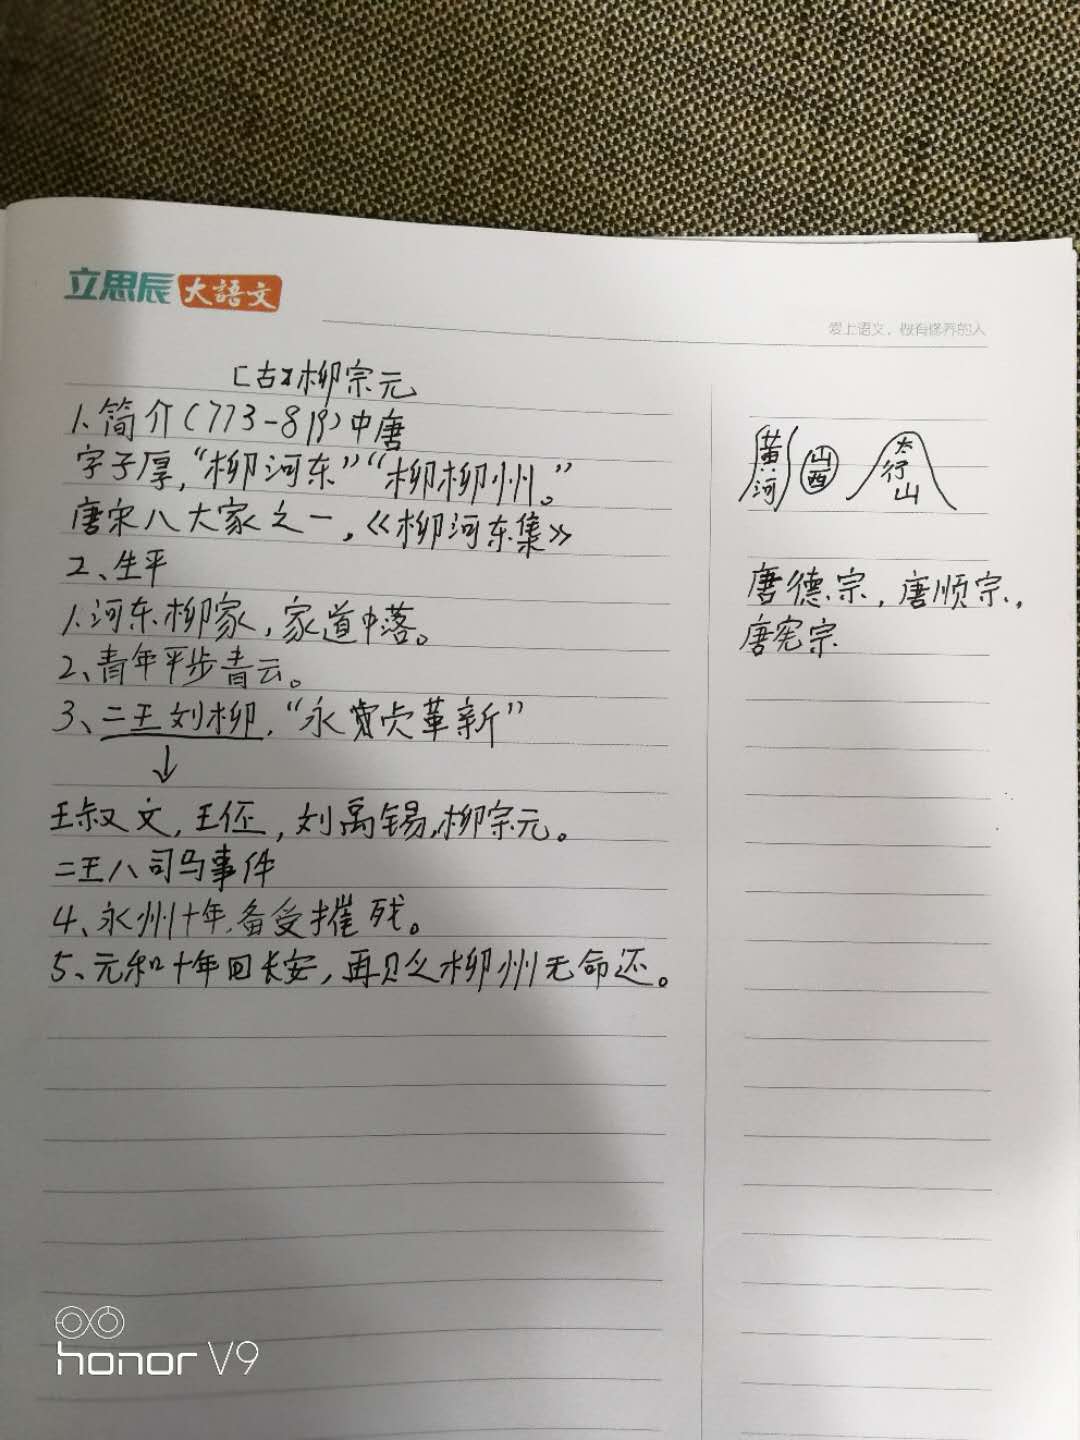 立思辰 大語文
爱上语文，做有修养的人
[古]柳宗元
1、简介(773-819)中唐
字子厚，“柳河东”“柳柳州。”
唐宋八大家之一，《柳河东集》
2、生平
1、河东柳家，家道中落。
2、青年平步青云。
3、二王刘柳，“永贞革新”
↓
王叔文，王伾，刘禹锡，柳宗元。
二王八司马事件
4、永州十年，备受摧残。
5、元和十年回长安，再贝之柳州无命还。
黄河 山西 太行山
唐德宗，唐顺宗，
唐宪宗
honor V9